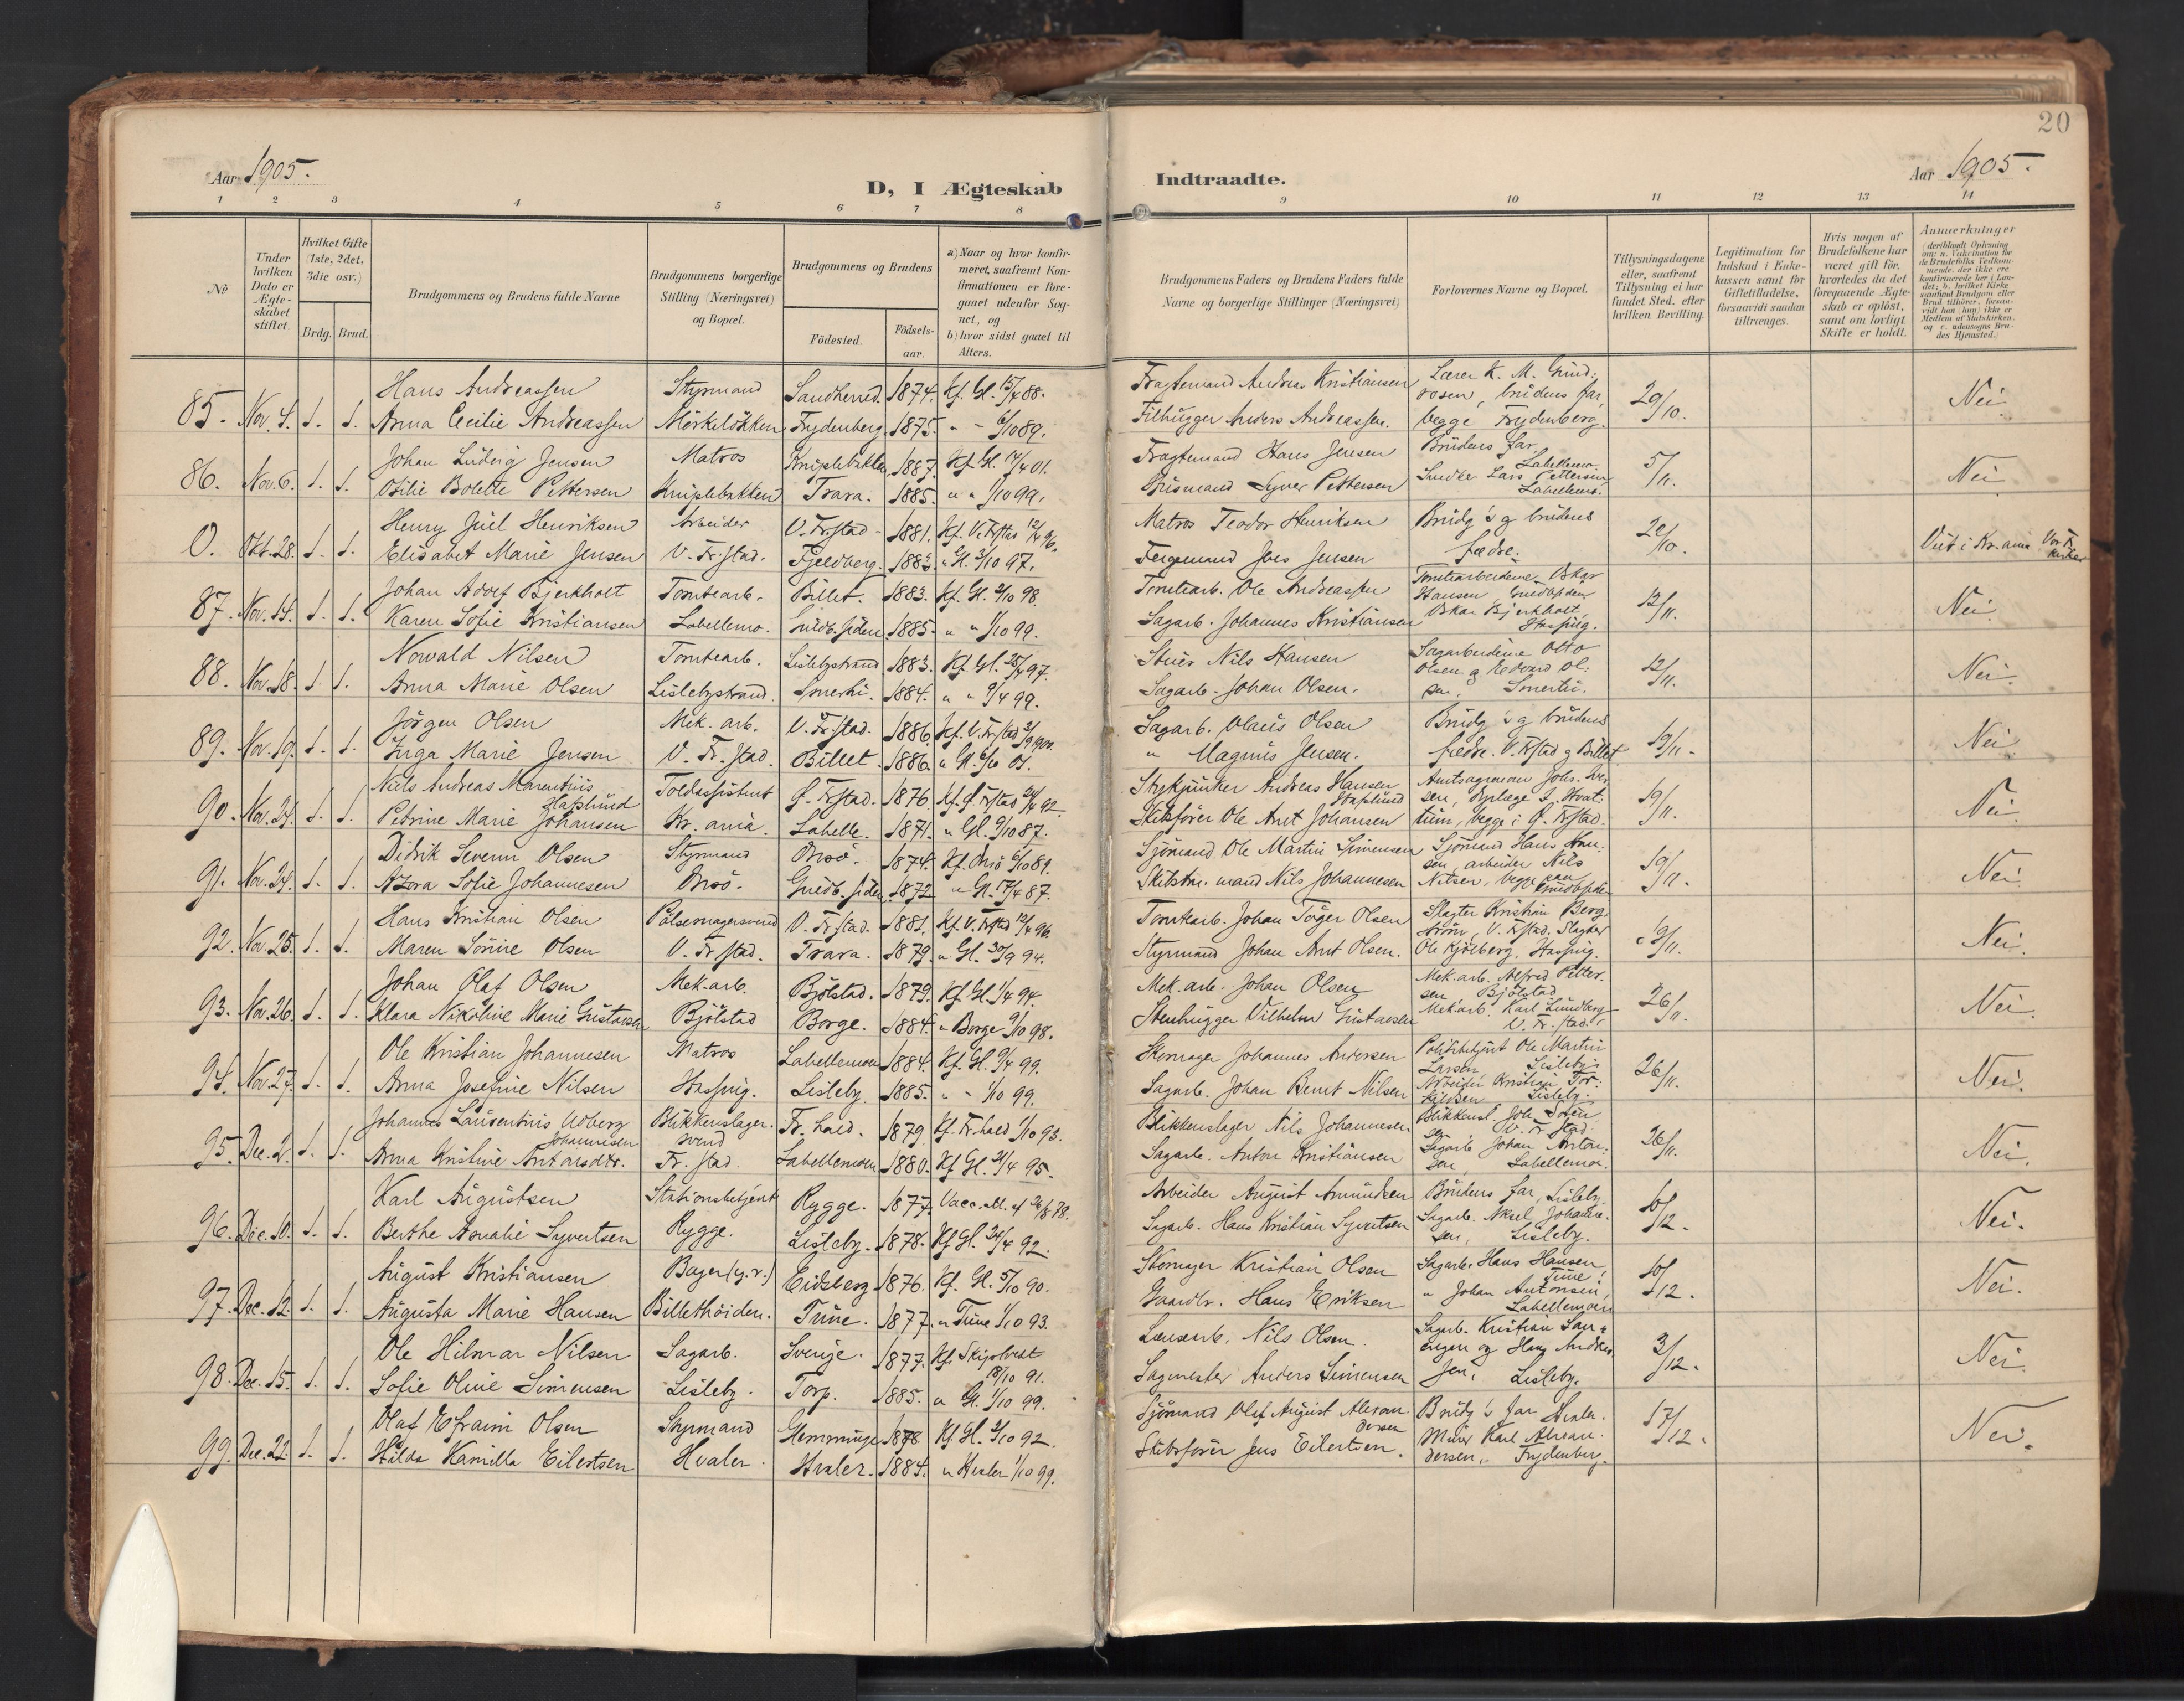 20
Aar 1905.
D, I Ægteskab
Indtraadte.
Aar 1905.
1 2 3 4 5 6 7 8
9 10 11 12 13 14
No
Under hvilken Dato er Ægteskabet stiftet.
Hvilket Gifte (1ste, 2det, 3die osv.)
Brdg. Brud.
Brudgommens og Brudens fulde Navne
Brudgommens borgerlige Stilling (Næringsvei) og Bopæl.
Brudgommens og Brudens
Födested.
Födselsaar.
a) Naar og hvor konfirmeret, saafremt Konfirmationen er foregaaet udenfor Sognet, og
b) hvor sidst gaaet til Alters.
Brudgommens Faders og Brudens Faders fulde Navne og borgerlige Stillinger (Næringsvei)
Forlovernes Navne og Bopæl.
Tillysningsdagene eller, saafremt Tillysning ei har fundet Sted, efter hvilken Bevilling.
Legitimation for Indskud i Enkekassen samt for Giftetilladelse, forsaavidt saadan tiltrænges.
Hvis nogen af Brudefolkene har været gift för, hvorledes da det foregaaende Ægteskab er oplöst, samt om lovligt Skifte er holdt.
Anmerkninger
(deriblandt Oplysning om: a. Vakcination for de Brudefolks Vedkommende, der ikke ere konfirmerede her i Landet; b. hvilket Kirkesamfund Brudgom eller Brud tilhörer, forsaavidt han (hun) ikke er Medlem af Statskirken, og c. udensogns Brudes Hjemsted.)
Hans Andreassen Styrmand Sandherred. 1874. Kf. Gl. 15/4 88. Fragtemand Andreas Kristiansen Lærer K. M. Gund:
85. Nov. 4. 1. 1. Anna Cecilie Andreassen Mörkelökken Frydenberg. 1875. " - 6/10 89. Filhugger Anders Andreassen. rosen, brudens far, begge Frydenberg. 29/10. Nei
Johan Ludvig Jensen Matros Kniplebakken 1887. Kf. Gl. 14/4 01. Fragtemand Hans Jensen Brudens far, Labellemo.
86. Nov. 6. 1. 1. Otilie Bolette Pettersen Kniplebakken Trara. 1885. " " 1/10 99. Syver Pettersen Lars Pettersen Labellemo. 5/11. Nei
Henry Juel Henriksen Arbeider V. Fr.stad. 1881. Kf. V. Frstad 12/4 96. Matros Teodor Henriksen Brudg's og brudens
0. Okt. 28. 1. 1. Elisabet Marie Jensen V. Fr. stad. Fjeldberg. 1883. " Gl. 3/10 97. Jens Jensen fædre. 22/10. Viet i Kr.ania Vor Fr. kirke
Johan Adolf Bjerkholt Tomtearb. Billet. 1883. Kf. Gl. 2/10 98. Tomtearb. Ole Andreassen Tomtearbeiderne Oskar
87. Nov. 14. 1. 1. Karen Sofie Kristiansen Labellemo. Guldb.siden 1885. " " 1/10 99. Sagarb. Johannes Kristiansen Hansen, Oskar Bjerkholt, Hassing. 12/11. Nei.
Norvald Nilsen Tomtearb. Lislebystrand 1883. Kf. Gl. 25/4 97. Stuer Nils Hansen Sagarbeiderne Otto
88. Nov. 18. 1. 1. Anna Marie Olsen Lislebystrand. Smerhi. 1884. " " 9/4 99. Sagarb. Johan Olsen. Olsen og Edvard Olsen, Smertu. 12/11. Nei.
Jörgen Olsen Mek. arb. V. Fr.stad. 1886. Kf. V. Frstad Sagarb. Olaus Olsen Brudg's og brudens
89. Nov. 19. 1. 1. Inga Marie Jensen V. Fr. stad. Billet. 1886. " Gl. 6/10 01. " Magnus Jensen. fædre. V. Frstad og Billet 19/11. Nei
Niels Andreas Marentius Haslund Toldassistent G. Frstad. 1876. Kf. G. Frstad 24/4 92. Stykjunker Andreas Hansen Haslund
90. Nov. 24. 1. 1. Petrine Marie Johansen Kr.ania. Labelle. 1871. " Gl. 9/10 87. Skibsförer Ole Anet Johansen begge i G. Frstad. 19/11. Nei.
Didrik Severin Olsen Styrmand Onsö. 1874. Kf. Onsö 6/10 89. Sjömand Ole Martin Simensen Sjömand Hans
91. Nov. 24. 1. 1. Azora Sofie Johannesen Onsö. Guldb.siden 1872 " Gl. 17/4 87. Skibstm. mand Nils Johannesen arbeider Nils Nilsen, begge paa 19/11. Nei
Hans Kristian Olsen Pölsemagersvend V. Fr.stad. 1881. Kf. V. Frstad 12/4 96. Tomtearb. Johan Töger Olsen Slagter Kristian Berg
92. Nov. 25. 1. 1. Maren Sörine Olsen V. Fr.stad. Trara. 1879. " Gl. 30/9 94. Styrmand Johan Arnt Olsen. V. Frstad. Slagter Ole Kjölberg, Hassing. 19/11. Nei.
Johan Olaf Olsen Mek. arb. Bjölstad. 1879. Kf. Gl. 1/4 94. Mek. arb. Johan Olsen Mek. arb. Alfred Petter-
93. Nov. 26. 1. 1. Klara Nikoline Marie Gustavsen Bjölstad Borge. 1884. " Borge 9/10 98. Stenhugger Vilhelm Gustavsen sen Bjölstad Mek arb. Karl Lundberg V. Fr. stad. 26/11. Nei.
Ole Kristian Johannesen Matros Labellemoen 1884. Kf. Gl. 9/4 99. Skomager Johannes Andersen Politibetjent Ole Martin
94. Nov. 27. 1. 1. Anna Josefine Nilsen Hassing. Lisleby. 1885. " - 1/10 99. Sagarb. Johan Bernt Nilsen Larsen Lisleby, Arbeider Kristian Tor: kildsen Lisleby. 26/11. Nei.
Johannes Laurentius Udberg Johannesen Blikkenslager. svend Fr. hald. 1879. Kf. Fr hald 1/10 93. Blikkenslager Nils Johannesen.
95. Dec. 2. 1. 1. Anna Kristine Antonsdtr. Fr. stad Labellemoen 1880. Kf Gl. 21/4 95. Sagarb. Anton Kristiansen Sagarb Johan Anton- sen, Labellemoe. 26/11. Nei.
Karl Augustsen Stationsbetjent Rygge. 1877. Vacc. att. af 26/8 78. Arbeider August Amundsen Brudens far, Lisleby.
96. Dec. 10. 1. 1. Berthe Amalie Syvertsen Rygge. Lisleby. 1878. Kf Gl. 24/4 92. Sagarb. Hans Kristian Syvertsen Sagarb. Aksel Johanne- sen, Lisleby. 10/12. Nei.
August Kristiansen Bager (g.v.) Eidsberg 1876. Kf. Gl. 5/10 90. Skomager Kristian Olsen Sagarb. Hans Hansen, Tune,
97. Dec. 12. 1. 1. Augusta Marie Hansen Billethöiden. Tune. 1877. " Tune 1/10 93. Gaardbr. Hans Eriksen " Johan Antonsen, Labellemoen 10/12. Nei.
Ole Hilmar Nilsen Sagarb. Sverige. 1877. Kf. Skiptvedt 18/10 91. Lænsearb. Nils Olsen Sagarb. Kristian
98. Dec. 15. 1. 1. Sofie Oline Simensen Lisleby. Torp. 1885. " Gl. 1/10 99. Sagmester Anders Simensen og Hans Andresen, Lisleby. 3/12. Nei.
Olaf Efraim Olsen Styrmand Glemminge 1878 Kf Gl. 2/10 92. Sjömand Olaf August Alexandersen Brudg's far Hvaler.
99. Dec. 22. 1. 1. Hilda Kamilla Eilertsen Hvaler. Hvaler. 1884. " Hvaler 1/10 99. Skibsförer Jens Eilertsen. Murer Karl Alexandersen, Frydenberg. 17/12. Nei.